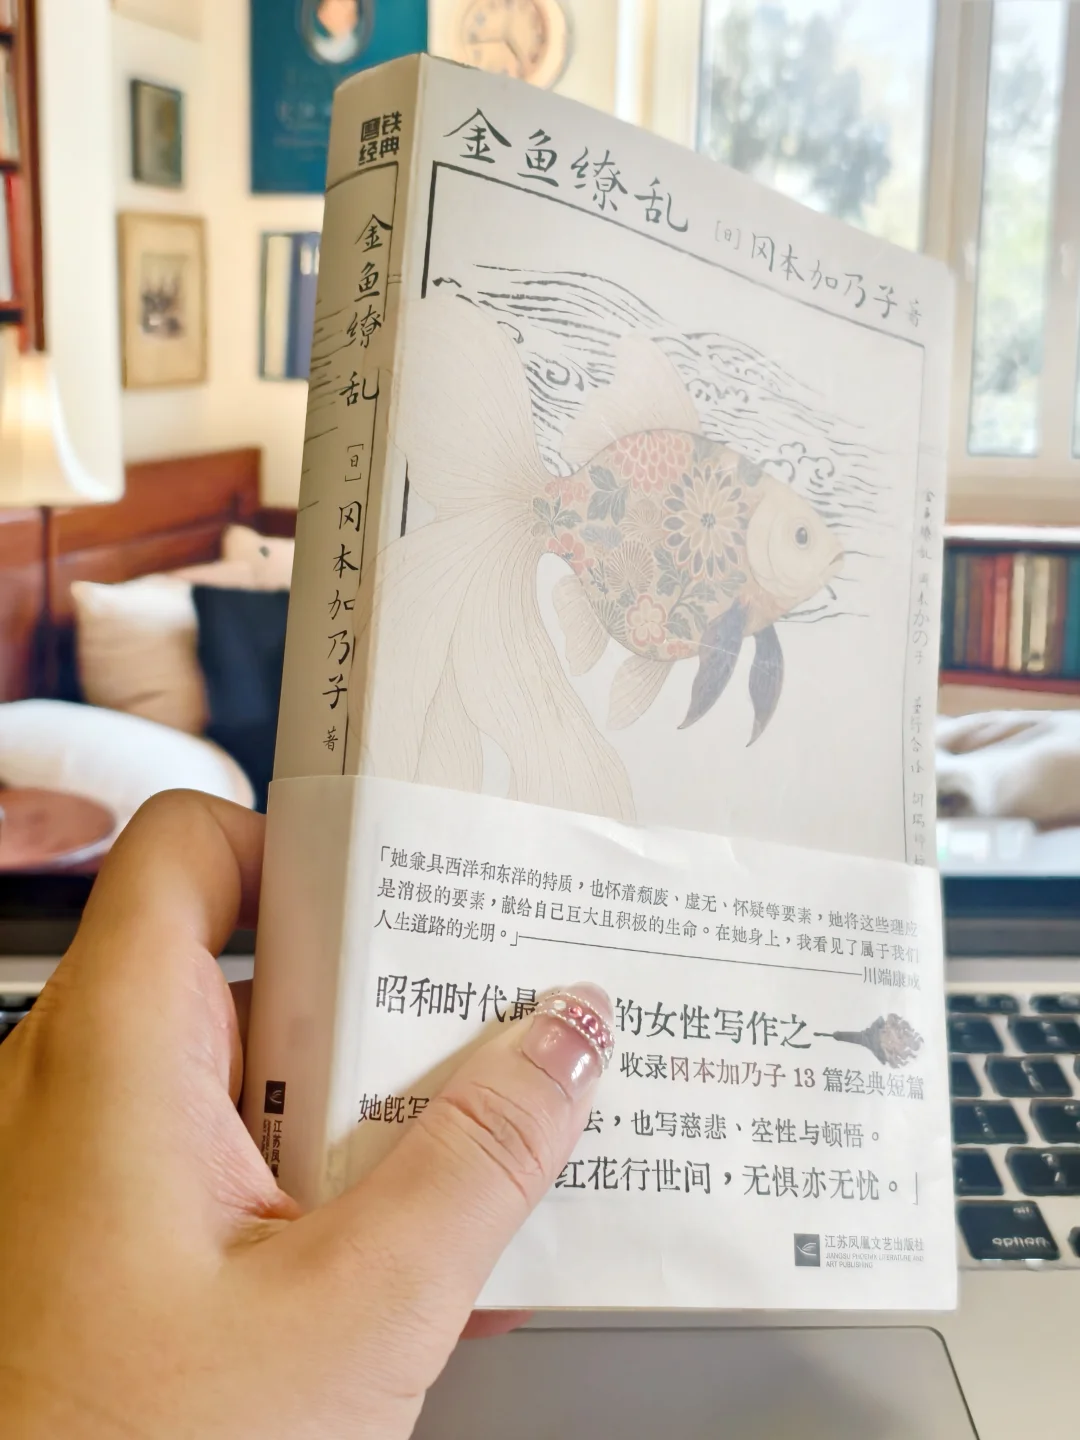 金鱼缭乱
[日] 冈本加乃子 著
磨铁经典
金鱼缭乱
[日] 冈本加乃子 著
「她兼具西洋和东洋的特质，也怀着颓废、虚无、怀疑等要素，她将这些理应
是消极的要素，献给自己巨大且积极的生命。在她身上，我看见了属于我们
人生道路的光明。」
川端康成
昭和时代最
的女性写作之一
收录冈本加乃子 13 篇经典短篇
她既写
去，也写慈悲、空性与顿悟。
红花行世间，无惧亦无忧。」
江苏凤凰文艺出版社
JIANGSU PHOENIX LITERATURE AND
ART PUBLISHING
江苏凤凰
option